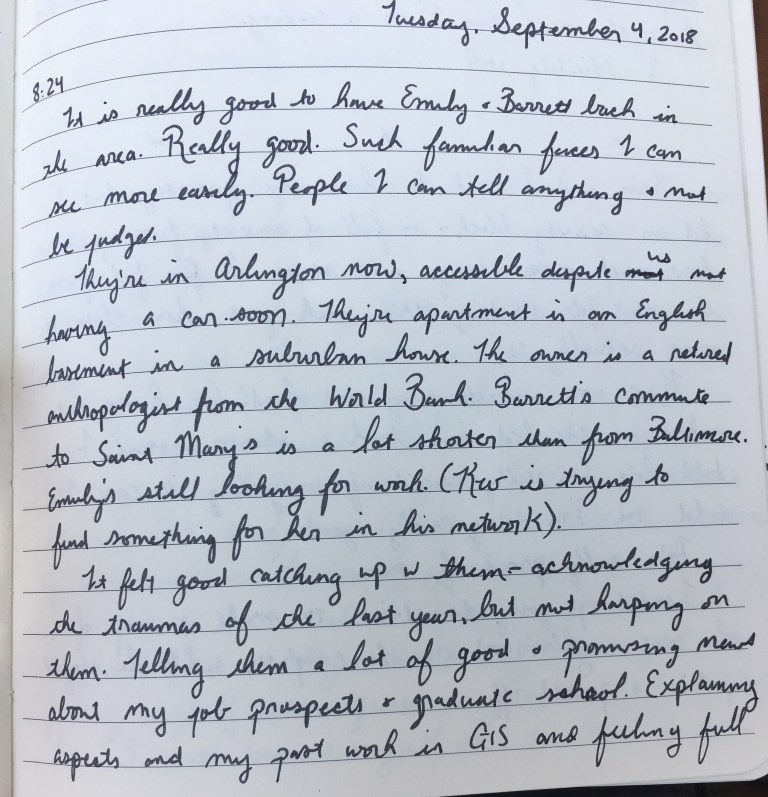 Tuesday, September 4, 2018
8:24
It is really good to have Emily & Barrett back in
the area. Really good. Such familiar faces I can
see more easily. People I can tell anything & not
be judged.
They're in Arlington now, accessible despite us not
having a car soon. They're apartment is an English
basement in a suburban house. The owner is a retired
anthropologist from the World Bank. Barrett's commute
to Saint Mary's is a lot shorter than from Baltimore.
Emily's still looking for work. (Kw is trying to
find something for her in his network).
It felt good catching up w them - acknowledging
the traumas of the last year, but not harping on
them. Telling them a lot of good & promising news
about my job prospects & graduate school. Explaining
aspects and my past work in GIS and feeling full